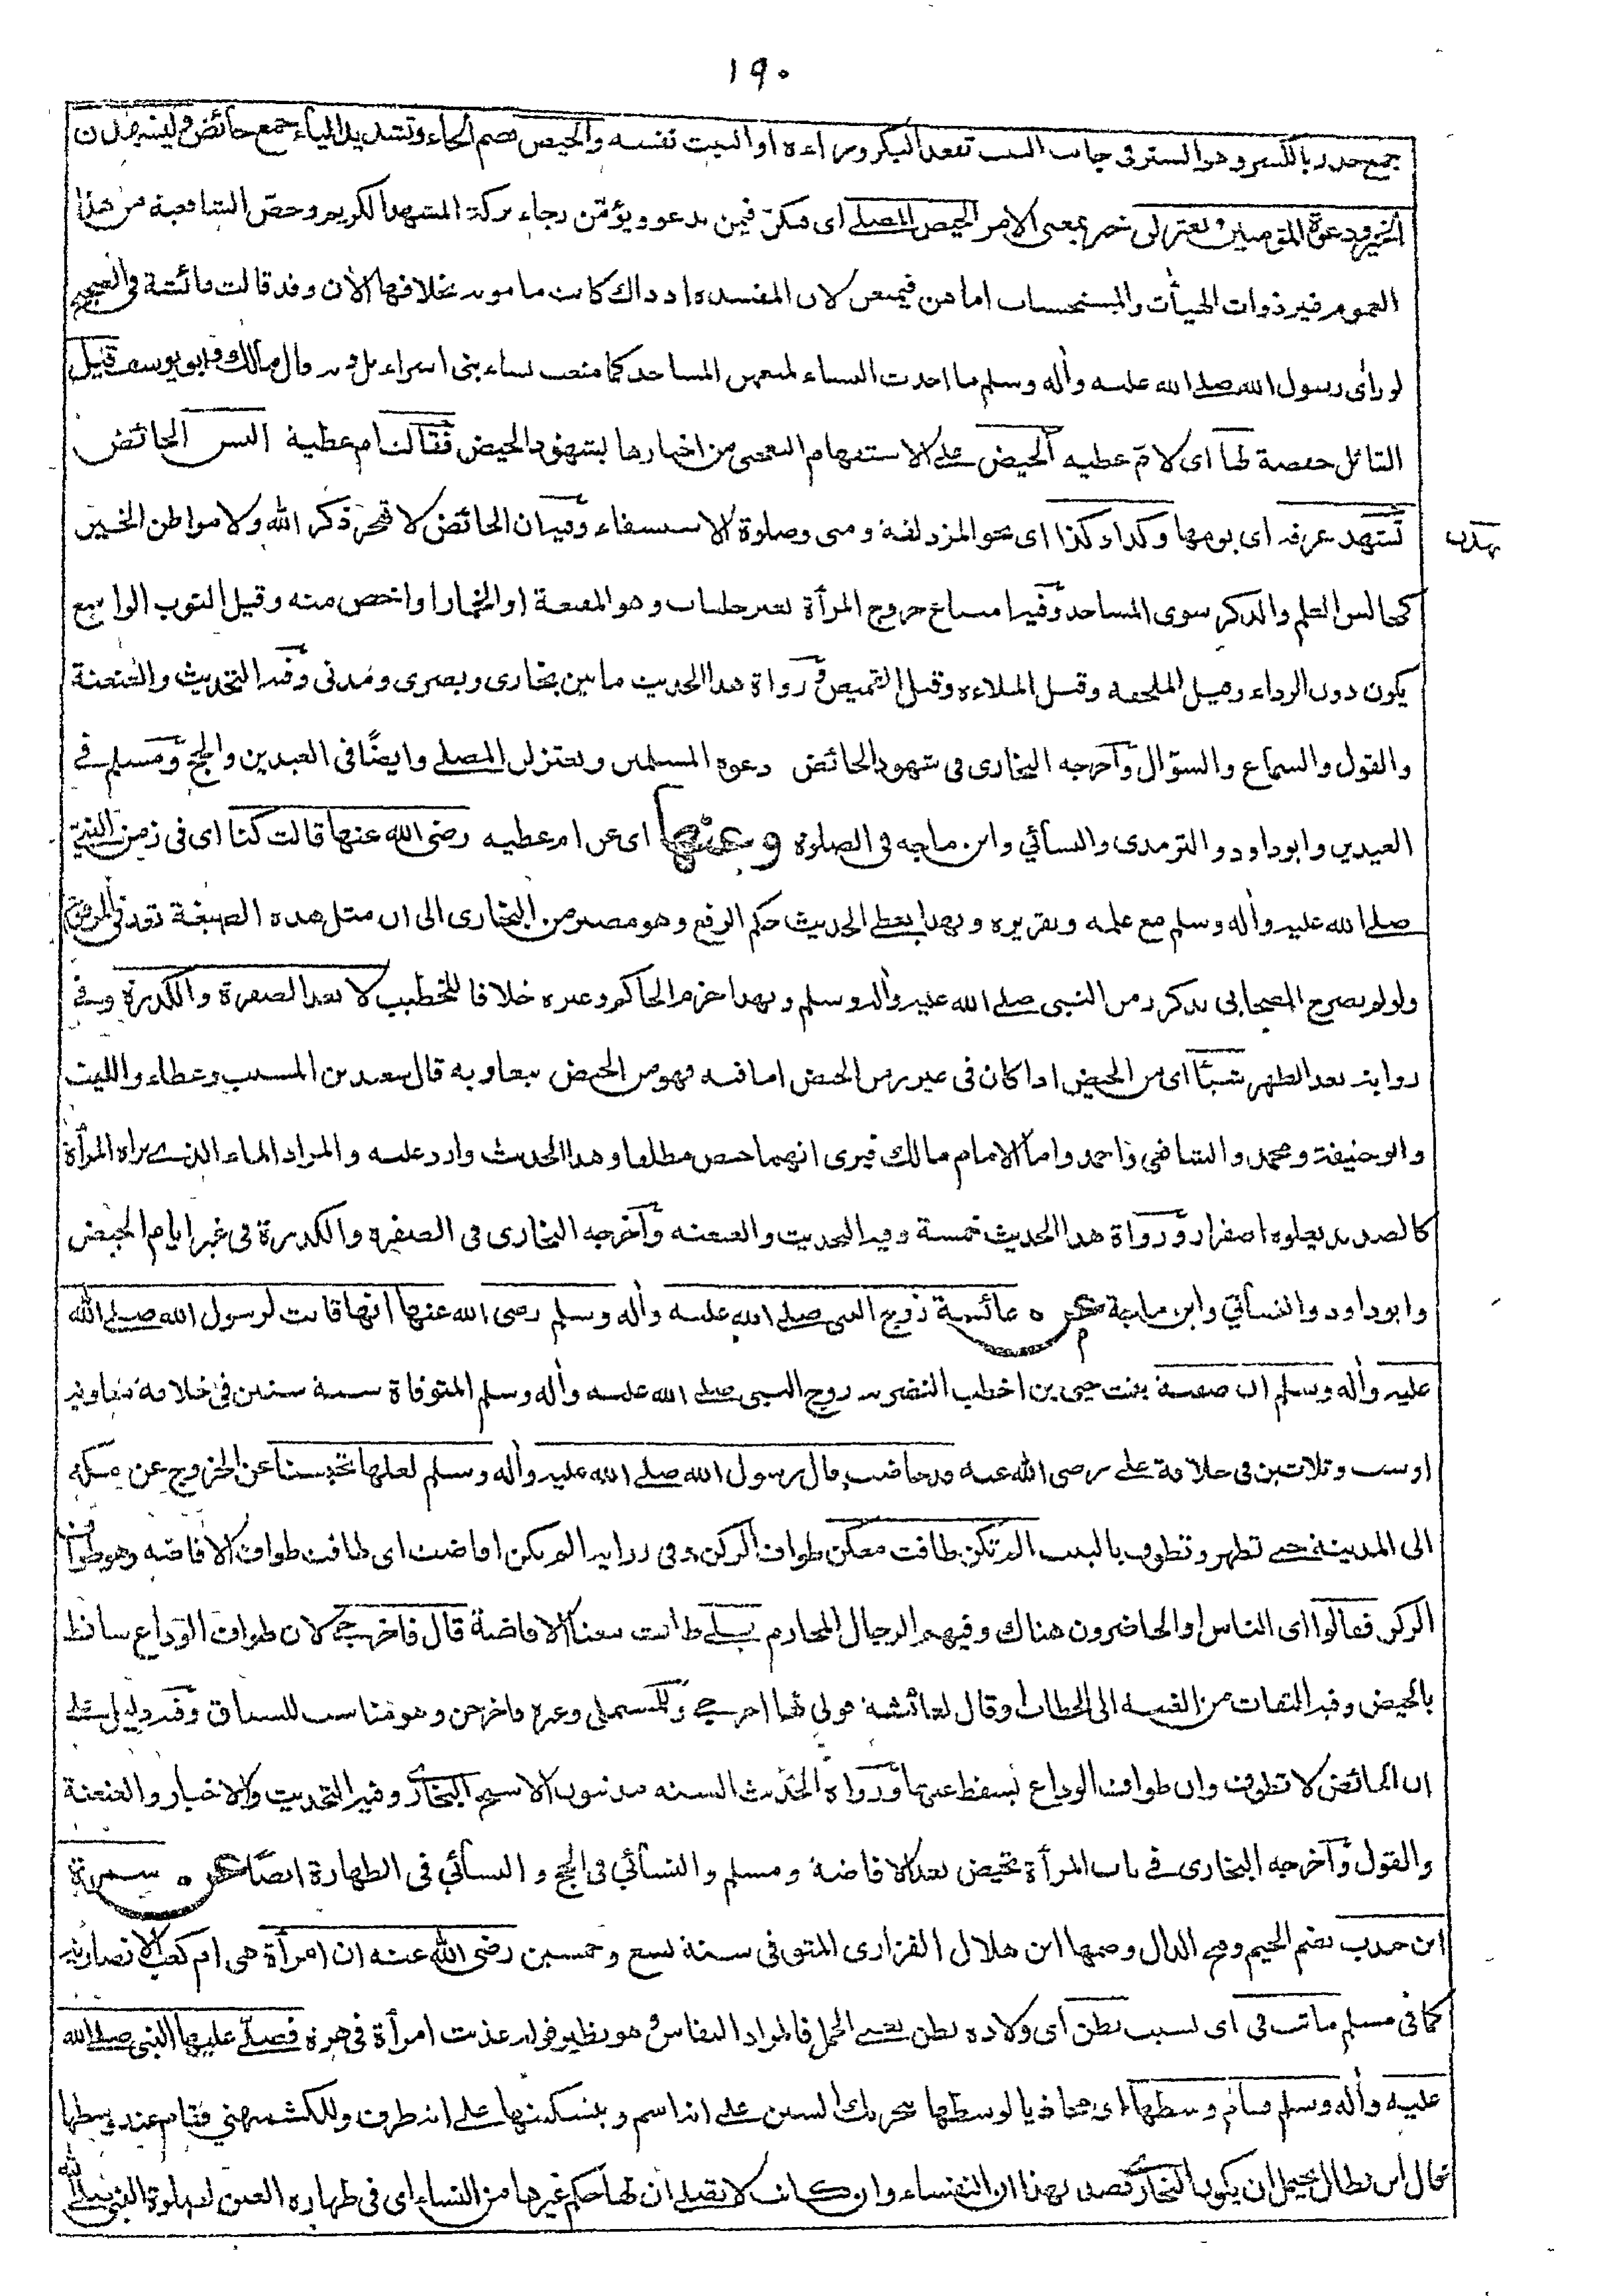 ١٩٠
جمع خدر بالكسر وهو الستر فى جانب البيت تقعد البكر وراءه او البيت نفسه والحيض بضم الحاء وتشديد الياء جمع حائض وليشهدن
الخير ودعوة المؤمنين ويعتزلن خبر بمعنى الامر الحيض المصلى اى فيكن فيمن يدعو ويؤمن رجاء بركة المشهد الكريم وخص الشافعية من هذا
العموم غير ذوات الهيأت والمستحسنات اما هن فيمنعن لان المفسدة اذ ذاك كانت مامونة بخلافها الأن وقد قالت عائشة فى الصحيح
لو رأى رسول الله صلى الله عليه وأله وسلم ما احدث النساء لمنعهن المساجد كما منعت نساء بنى اسراءيل وبه قال مالك وابو يوسف قيل
القائل حفصة لها اى لام عطية ألحيض على الاستفهام التعجبى من اخبارها بشهود الحيض فقالت ام عطية اليس الحائض
تشهد عرفة اى يومها وكذا وكذا اى نحو المزدلفة ومنى وصلوة الاستسقاء وفيه ان الحائض لا تهجر ذكر الله ولا مواطن الخير
كمجالس العلم والذكر سوى المساجد وفيه امتناع خروج المرأة بغير جلباب وهو المقنعة او الخمار او اخص منه وقيل الثوب الواسع
يكون دون الرداء وقيل الملحفة وقيل الملاءة وقيل القميص ورواة هذا الحديث ما بين بخارى وبصرى ومدنى وفيه التحديث والعنعنة
والقول والسماع والسؤال وأخرجه البخارى فى شهود الحائض دعوة المسلمين ويعتزلن المصلى وايضًا فى العيدين والحج ومسلم فى
العيدين وابوداود والترمذى والنسائي وابن ماجه فى الصلوة وعنها اى عن ام عطية رضى الله عنها قالت كنا اى فى زمن النبى
صلى الله عليه وأله وسلم مع علمه وتقريره وبهذا يعطى الحديث حكم الرفع وهو مصير من البخارى الى ان مثل هذه الصيغة تعد فى المرفوع
ولو لم يصرح الصحابى بذكر زمن النبى صلى الله عليه وأله وسلم وبهذا جزم الحاكم وغيره خلافا للخطيب لا نعد الصفرة والكدرة وفى
رواية بعد الطهر شيئًا اى من الحيض اذا كان فى غير زمن الحيض اما فيه فهو من الحيض تبعا وبه قال سعيد بن المسيب وعطاء والليث
وابو حنيفة ومحمد والشافعى واحمد واما الامام مالك فيرى انهما حيض مطلقا وهذا الحديث وارد عليه والمراد الماء الذى تراه المرأة
كالصديد يعلوه اصفرار ورواة هذا الحديث خمسة وفيه التحديث والعنعنة وأخرجه البخارى فى الصفرة والكدرة فى غير ايام الحيض
وابوداود والنسائي وابن ماجة عن عائشة زوج النبى صلى الله عليه وأله وسلم رضى الله عنها انها قالت لرسول الله صلى الله
عليه وأله وسلم ان صفية بنت حيى بن اخطب النضرية زوج النبى صلى الله عليه وأله وسلم المتوفاة سنة ستين فى خلافة معاوية
او ست وثلاثين فى خلافة على رضى الله عنه قد حاضت قال رسول الله صلى الله عليه وأله وسلم لعلها تحبسنا عن الخروج عن مكة
الى المدينة حتى تطهر وتطوف بالبيت الم تكن طافت معكن طواف الركن وفى رواية الم تكن افاضت اى طافت طواف الافاضة وهو طواف
الركن فقالوا اى الناس او الحاضرون هناك وفيهم الرجال المحارم بلى طافت معنا الافاضة قال فاخرجى لان طواف الوداع ساقط
بالحيض وفيه التفات من الغيبة الى الخطاب او قال لعائشة قولى لها اخرجى وللمستملى وغيره فاخرجن وهو مناسب للسياق وفيه دليل على
ان الحائض لا تطوف وان طواف الوداع يسقط عنها ورواة الحديث الستة مدنيون الا شيخ البخارى وفيه التحديث والاخبار والعنعنة
والقول وأخرجه البخارى فى باب المرأة تحيض بعد الافاضة ومسلم والنسائي فى الحج والنسائي فى الطهارة ايضًا عن سمرة
ابن جندب بضم الجيم وفتح الدال وضمها ابن هلال الفزارى المتوفى سنة تسع وخمسين رضى الله عنه ان امرأة هى ام كعب الانصارية
كما فى مسلم ماتت فى اى بسبب بطن اى ولادة بطن يعنى الحمل فالمراد النفاس وهو نظير قوله عذبت امرأة فى هرة فصلى عليها النبى صلى الله
عليه وأله وسلم فقام وسطها اى محاذيا لوسطها بتحريك السين على انه اسم وبتسكينها على انه ظرف وللكشميهنى فقام عند وسطها
قال ابن بطال يحتمل ان يكون البخارى قصد بهذا ان النفساء وان كانت لا تصلى ان لها حكم غيرها من النساء اى فى طهارة العين لصلوة النبى صلى الله